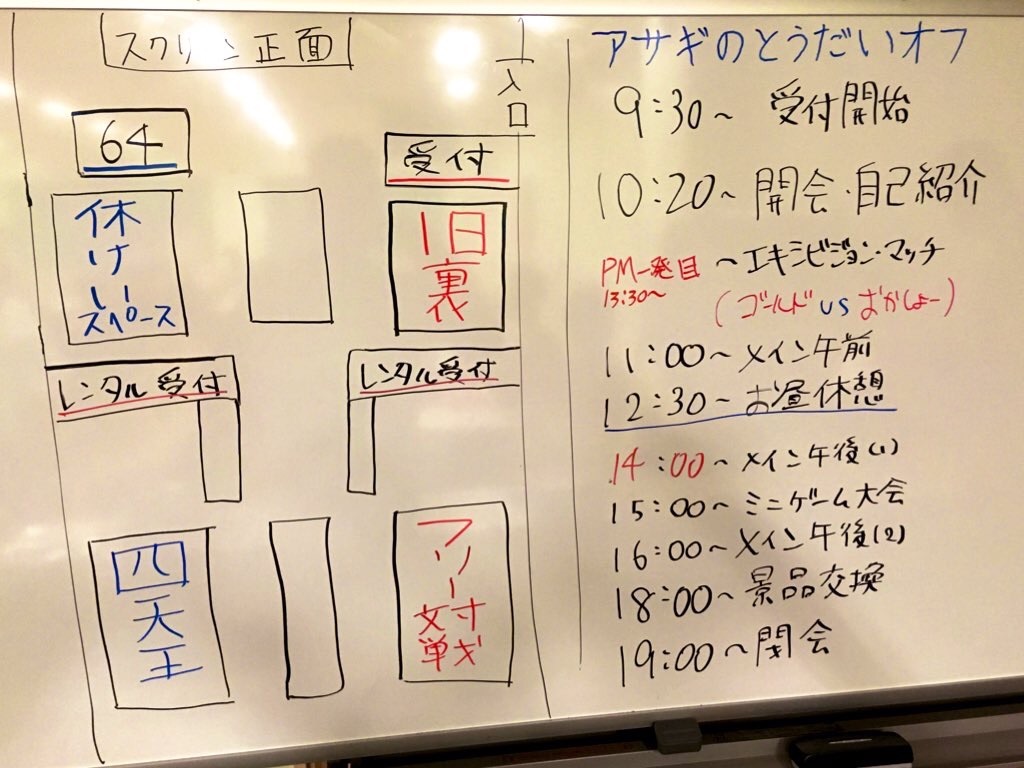 スクリーン正面
入口
64
受付
休けい
スペース
旧裏
レンタル受付
レンタル受付
四天王
フリー対戦
アサギのとうだいオフ
9:30～ 受付開始
10:20～ 開会・自己紹介
PM一発目 ～エキシビジョン・マッチ
13:30～
(ゴールド vs おかしょー)
11:00～メイン午前
12:30～お昼休憩
14:00～メイン午後(1)
15:00～ミニゲーム大会
16:00～メイン午後(2)
18:00～景品交換
19:00～閉会